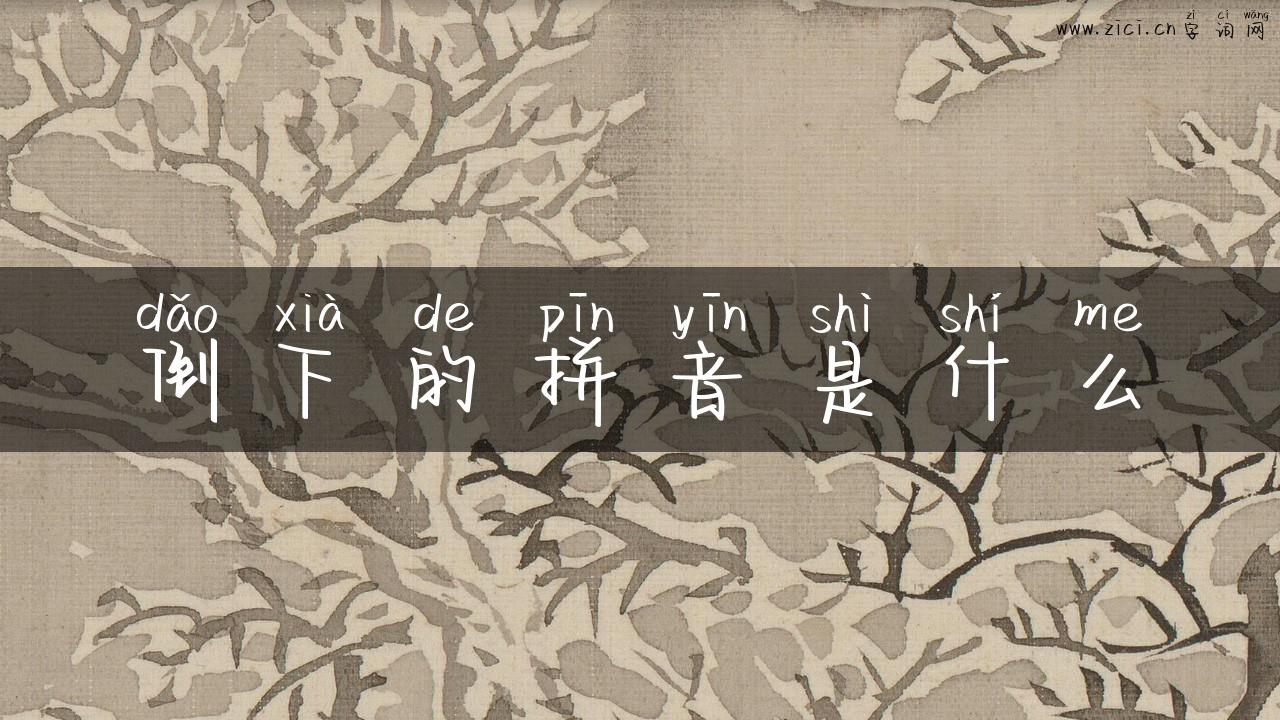 zì cí wǎng
www.zici.cn 字 词 网
dǎo xià de pīn yīn shì shí me
倒 下 的 拼 音 是 什 么